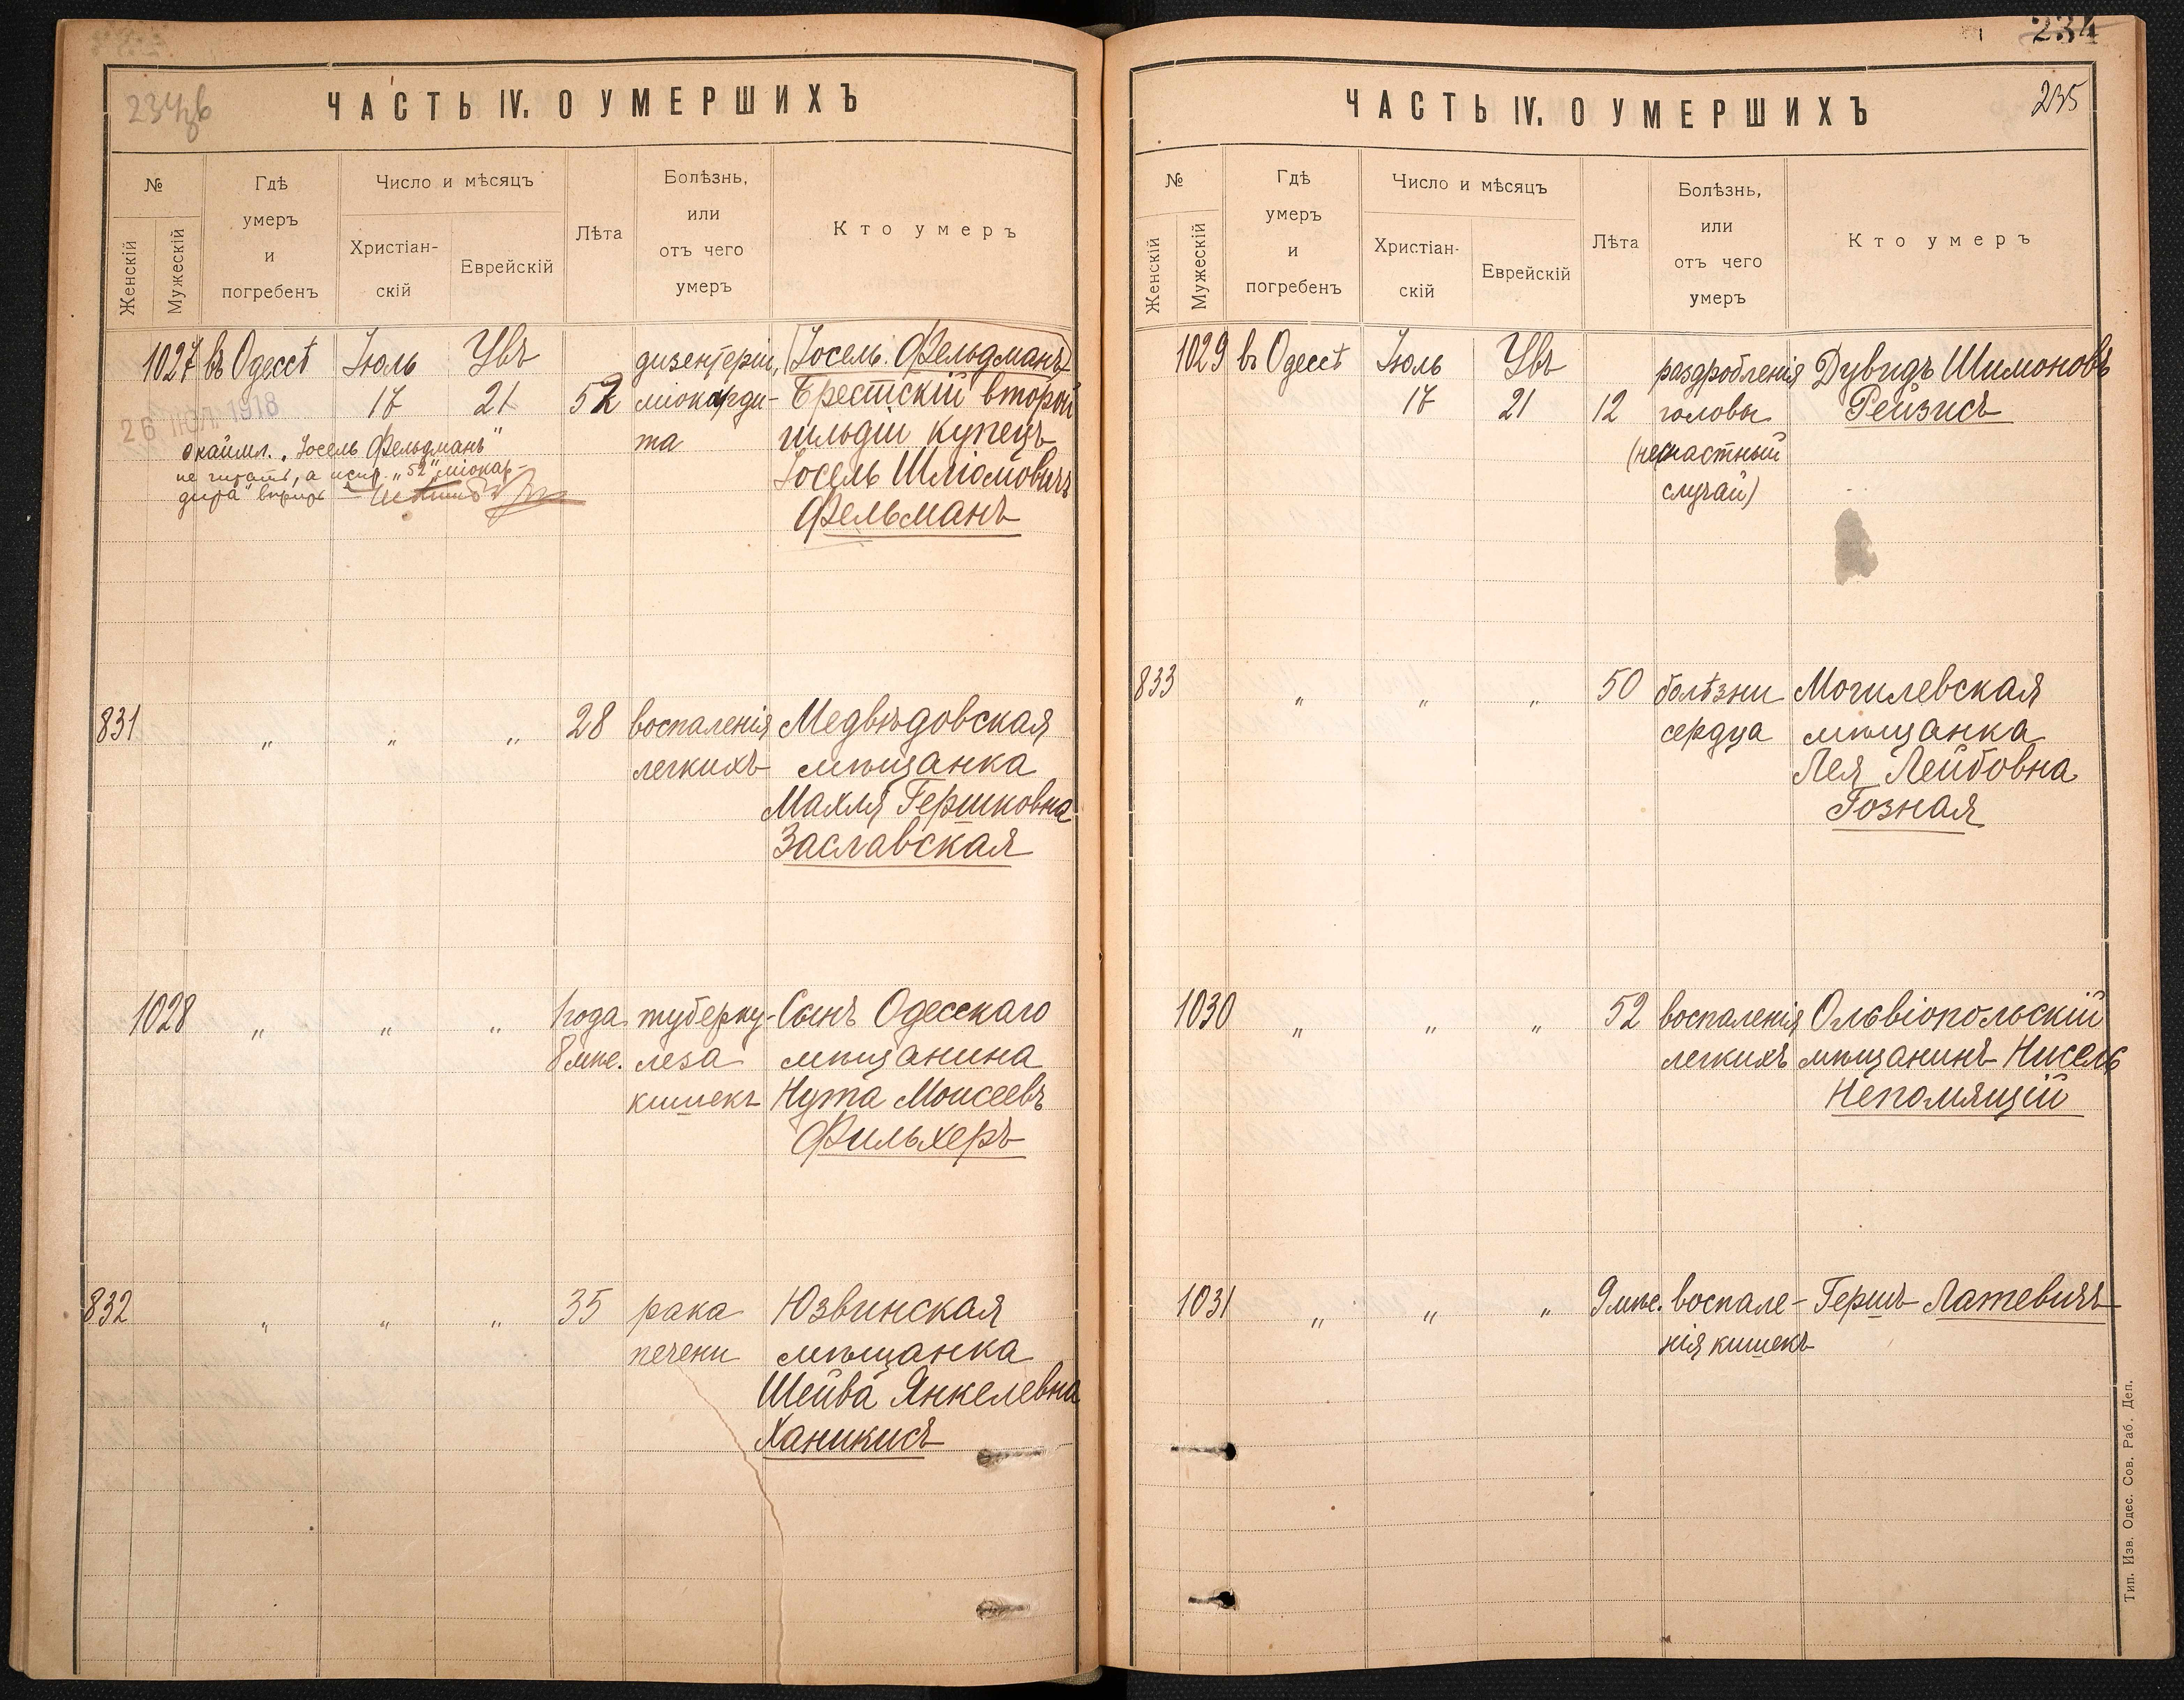 234 об
ЧАСТЬ IV. О УМЕРШИХЪ
№
Женскій
Мужескій
Гдѣ
умеръ
и
погребенъ
Число и мѣсяцъ
Христіан-
скій
Еврейскій
Лѣта
Болѣзнь,
или
отъ чего
умеръ
Кто умеръ
1027 въ Одессѣ Іюль Увъ дизентеріи, (Іосель Фельдманъ)
17 21 52 міокарди- Брестскій второй
та гильдіи купецъ
Іосель Шліомовичъ
Фельманъ
26 ІЮЛ. 1918
окаймл. „Іосель Фельдманъ"
не читать, а испр. „52", „міокар-
дита" вѣрить
831 „ „ „ 28 воспаленія Медвѣдовская
легкихъ мѣщанка
Махля Гершковна
Заславская
1028 „ „ „ 1 года туберку- Сынъ Одесскаго
8 мѣс. леза мѣщанина
кишекъ Нута Моисеевъ
Фильхеръ
832 „ „ „ 35 рака Юзвинская
печени мѣщанка
Шейва Янкелевна
Ханикисъ
234
235
ЧАСТЬ IV. О УМЕРШИХЪ
№
Женскій
Мужескій
Гдѣ
умеръ
и
погребенъ
Число и мѣсяцъ
Христіан-
скій
Еврейскій
Лѣта
Болѣзнь,
или
отъ чего
умеръ
Кто умеръ
1029 въ Одессѣ Іюль Увъ раздробленія Дувидъ Шимоновъ
17 21 12 головы Рейзисъ
(несчастный
случай)
833 „ „ „ 50 болѣзни Могилевская
сердца мѣщанка
Лея Лейбовна
Гозная
1030 „ „ „ 52 воспаленія Ольвіопольскій
легкихъ мѣщанинъ Нисель
Непомящій
1031 „ „ „ 9 мѣс. воспале- Гершъ Латевичъ
нія кишекъ
Тип. Изв. Одес. Сов. Раб. Деп.